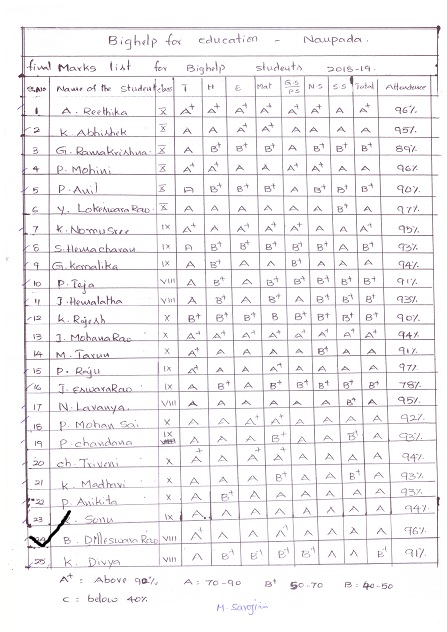 Bighelp for education - Naupada.
final Marks list for Bighelp students 2018-19.
S.No Name of the Student class T H E Mat G.S P.S N.S S.S Total Attendance
1 A. Reethika X A+ A+ A+ A+ A+ A+ A A+ 96%
2 K. Abhishek X A+ A A+ A+ A A A A 95%
3 G. Ramakrishna X A B+ B+ B+ A B+ B+ B+ 89%
4 P. Mohini X A+ A+ A A A+ A+ A A 96%
5 P. Anil X A B+ B+ B+ A B+ B+ B+ 90%
6 Y. Lokeswara Rao X A A A A A A B+ A 97%
7 K. Nomu Sree IX A+ A A+ A+ A A A A+ 95%
8 S. Hemacharan IX A B+ B+ B+ B+ B+ A B+ 93%
9 G. Kamalika IX A A A A B+ A A A 94%
10 P. Teja VIII A B+ A B+ B+ B+ B+ B+ 91%
11 J. Hemalatha VIII A B+ A B+ A B+ B+ B+ 93%
12 K. Rajesh X B+ B+ B+ B B+ B+ B+ B+ 90%
13 J. Mohana Rao X A+ A+ A+ A+ A+ A+ A+ A+ 94%
14 M. Tarun X A A A A A B+ A A 91%
15 P. Raju IX A+ A A+ A+ A A A A 97%
16 J. Eswara Rao IX A B+ A B+ B+ B+ B+ B+ 78%
17 N. Lavanya. VIII A A A A A A B+ A 95%
18 P. Mohan Sai X A A A+ A+ A A A A 92%
19 P chandana IX A A A B+ A A B+ A 93%
20 ch. Triveni X A+ A A+ A+ A A A A 94%
21 K. Madhavi X A A A B+ A A B+ A 93%
22 P. Ankita X A B+ A A A A A A 93%
23 Sonu IX A A A A A A A A 94%
B. Dilleswara Rao VIII A A A A+ A A A A 96%
25 K. Divya VIII A B+ B+ B+ B+ A A B+ 91%
A+ : Above 90% A : 70-90 B+ 50-70 B : 40-50
C : below 40%
M. Sarojini